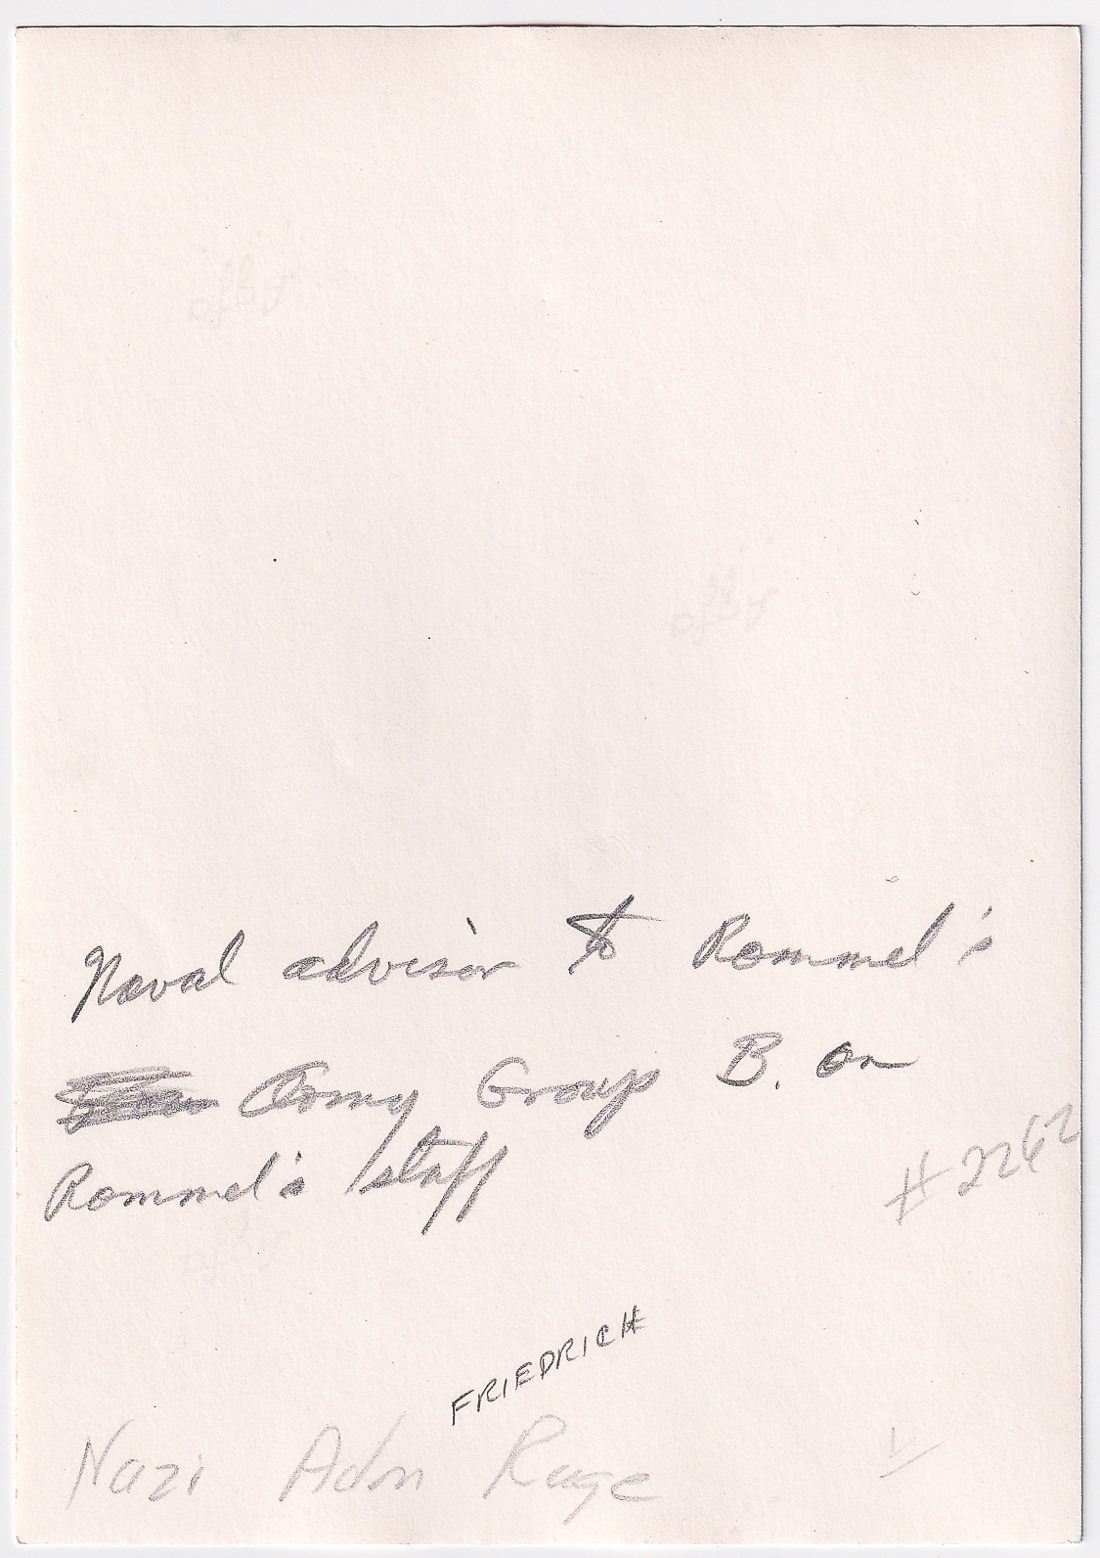 Agfa
Agfa
Naval advisor to Rommel's
Army Group B. on
Rommel's staff
#2262
Agfa
FRIEDRICH
Nazi Adm Ruge
V